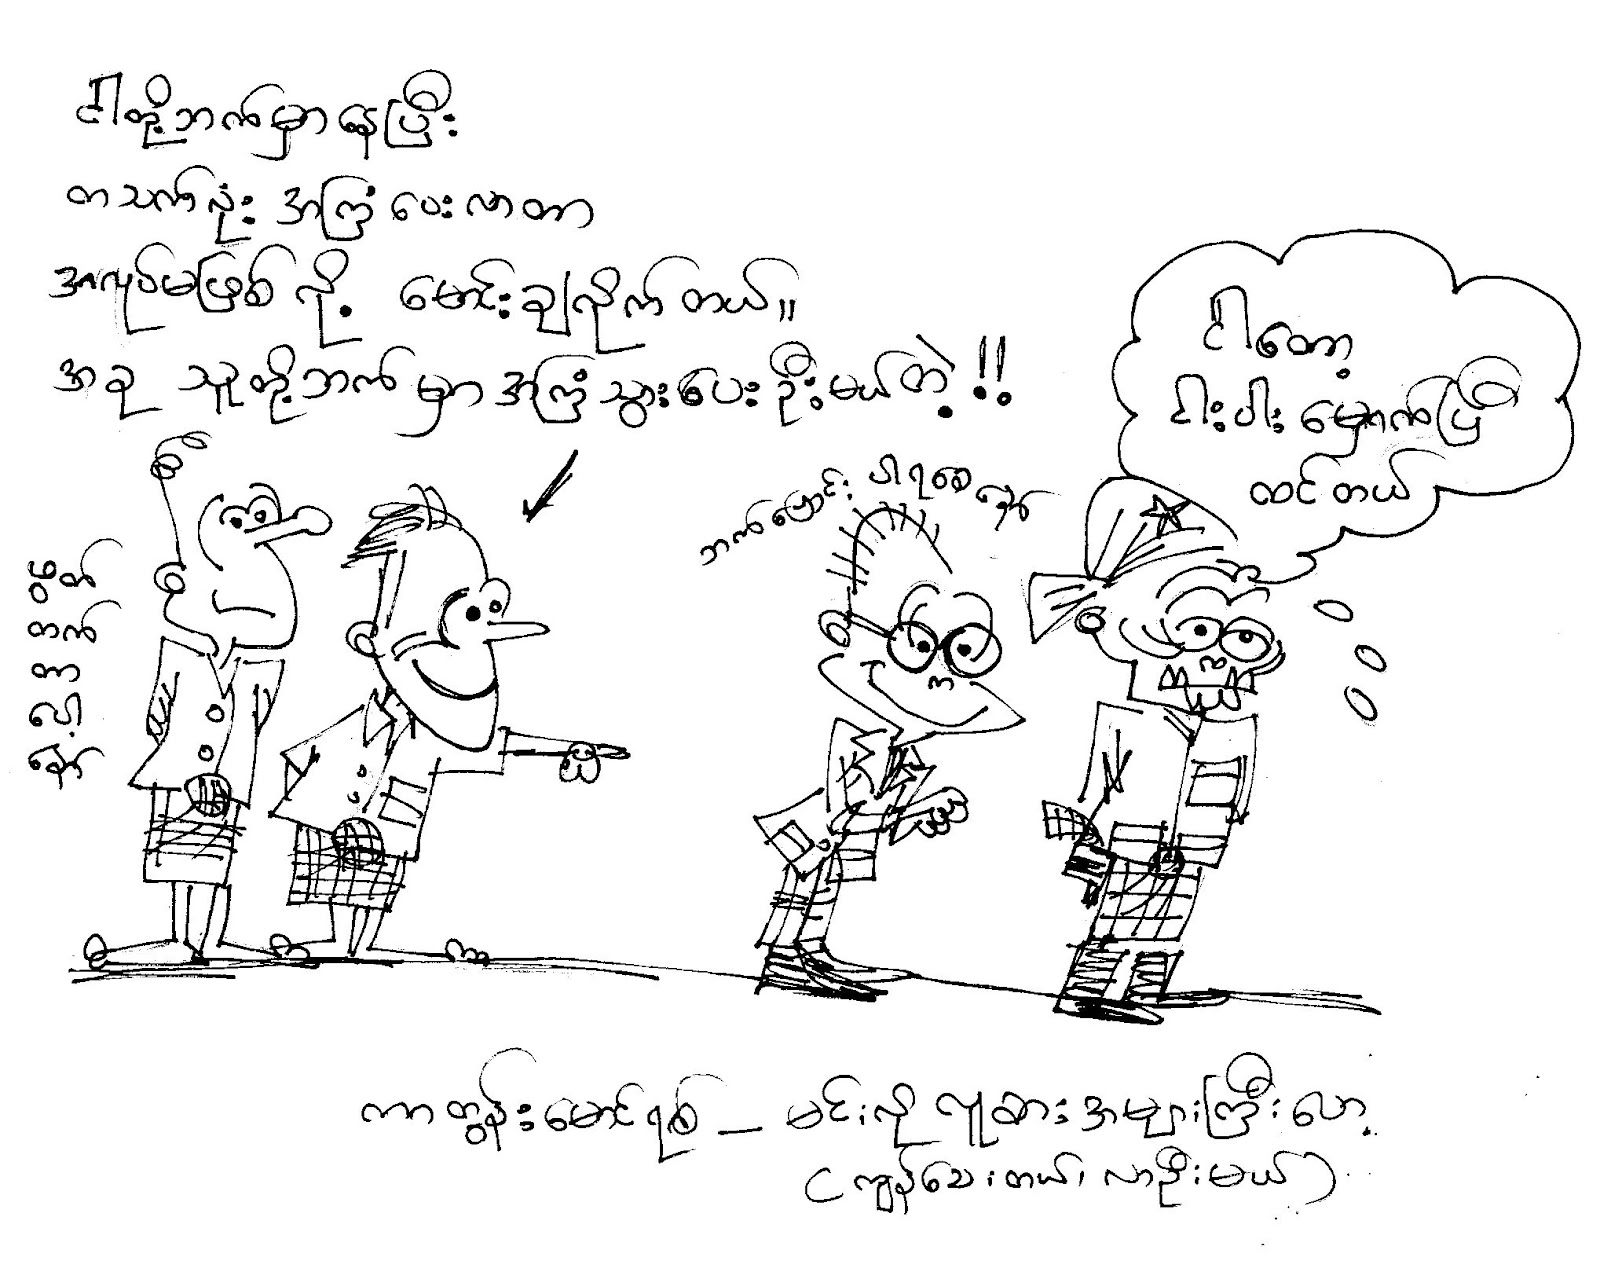 ငါတို့ဘက်မှာနေပြီး
တသက်လုံး အကြံပေးလာတာ
အလုပ်မဖြစ်လို့ မောင်းချလိုက်တယ်။
အခု သူတို့ဘက်မှာအကြံသွားပေးဦးမယ်တဲ့!!
ငါတော့
ငါးပါးမှောက်ပြီ
ထင်တယ်
ဘက်ပြောင်းပါရစေနော်
မွှတ်
တက်
တာ
ပေါ့
နော်
ကာတွန်းမောင်ရစ် – မင်းလို လူစားအများကြီးလော့
(ကျန်သေးတယ်၊ လာဦးမယ်)